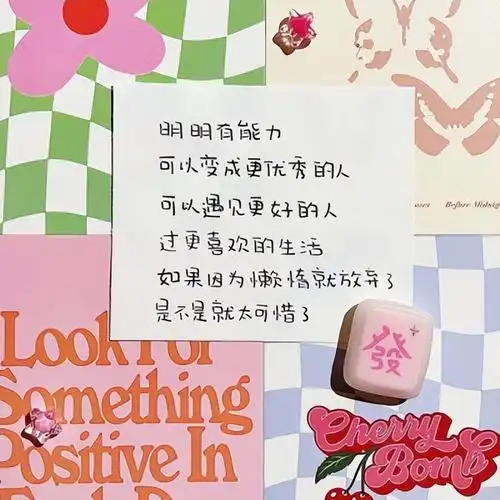 明明有能力
可以变成更优秀的人
可以遇见更好的人
过更喜欢的生活
如果因为懒惰就放弃了
是不是就太可惜了
發
Before Midnigh
Look For
Something
Positive In
Cherry
Bomb